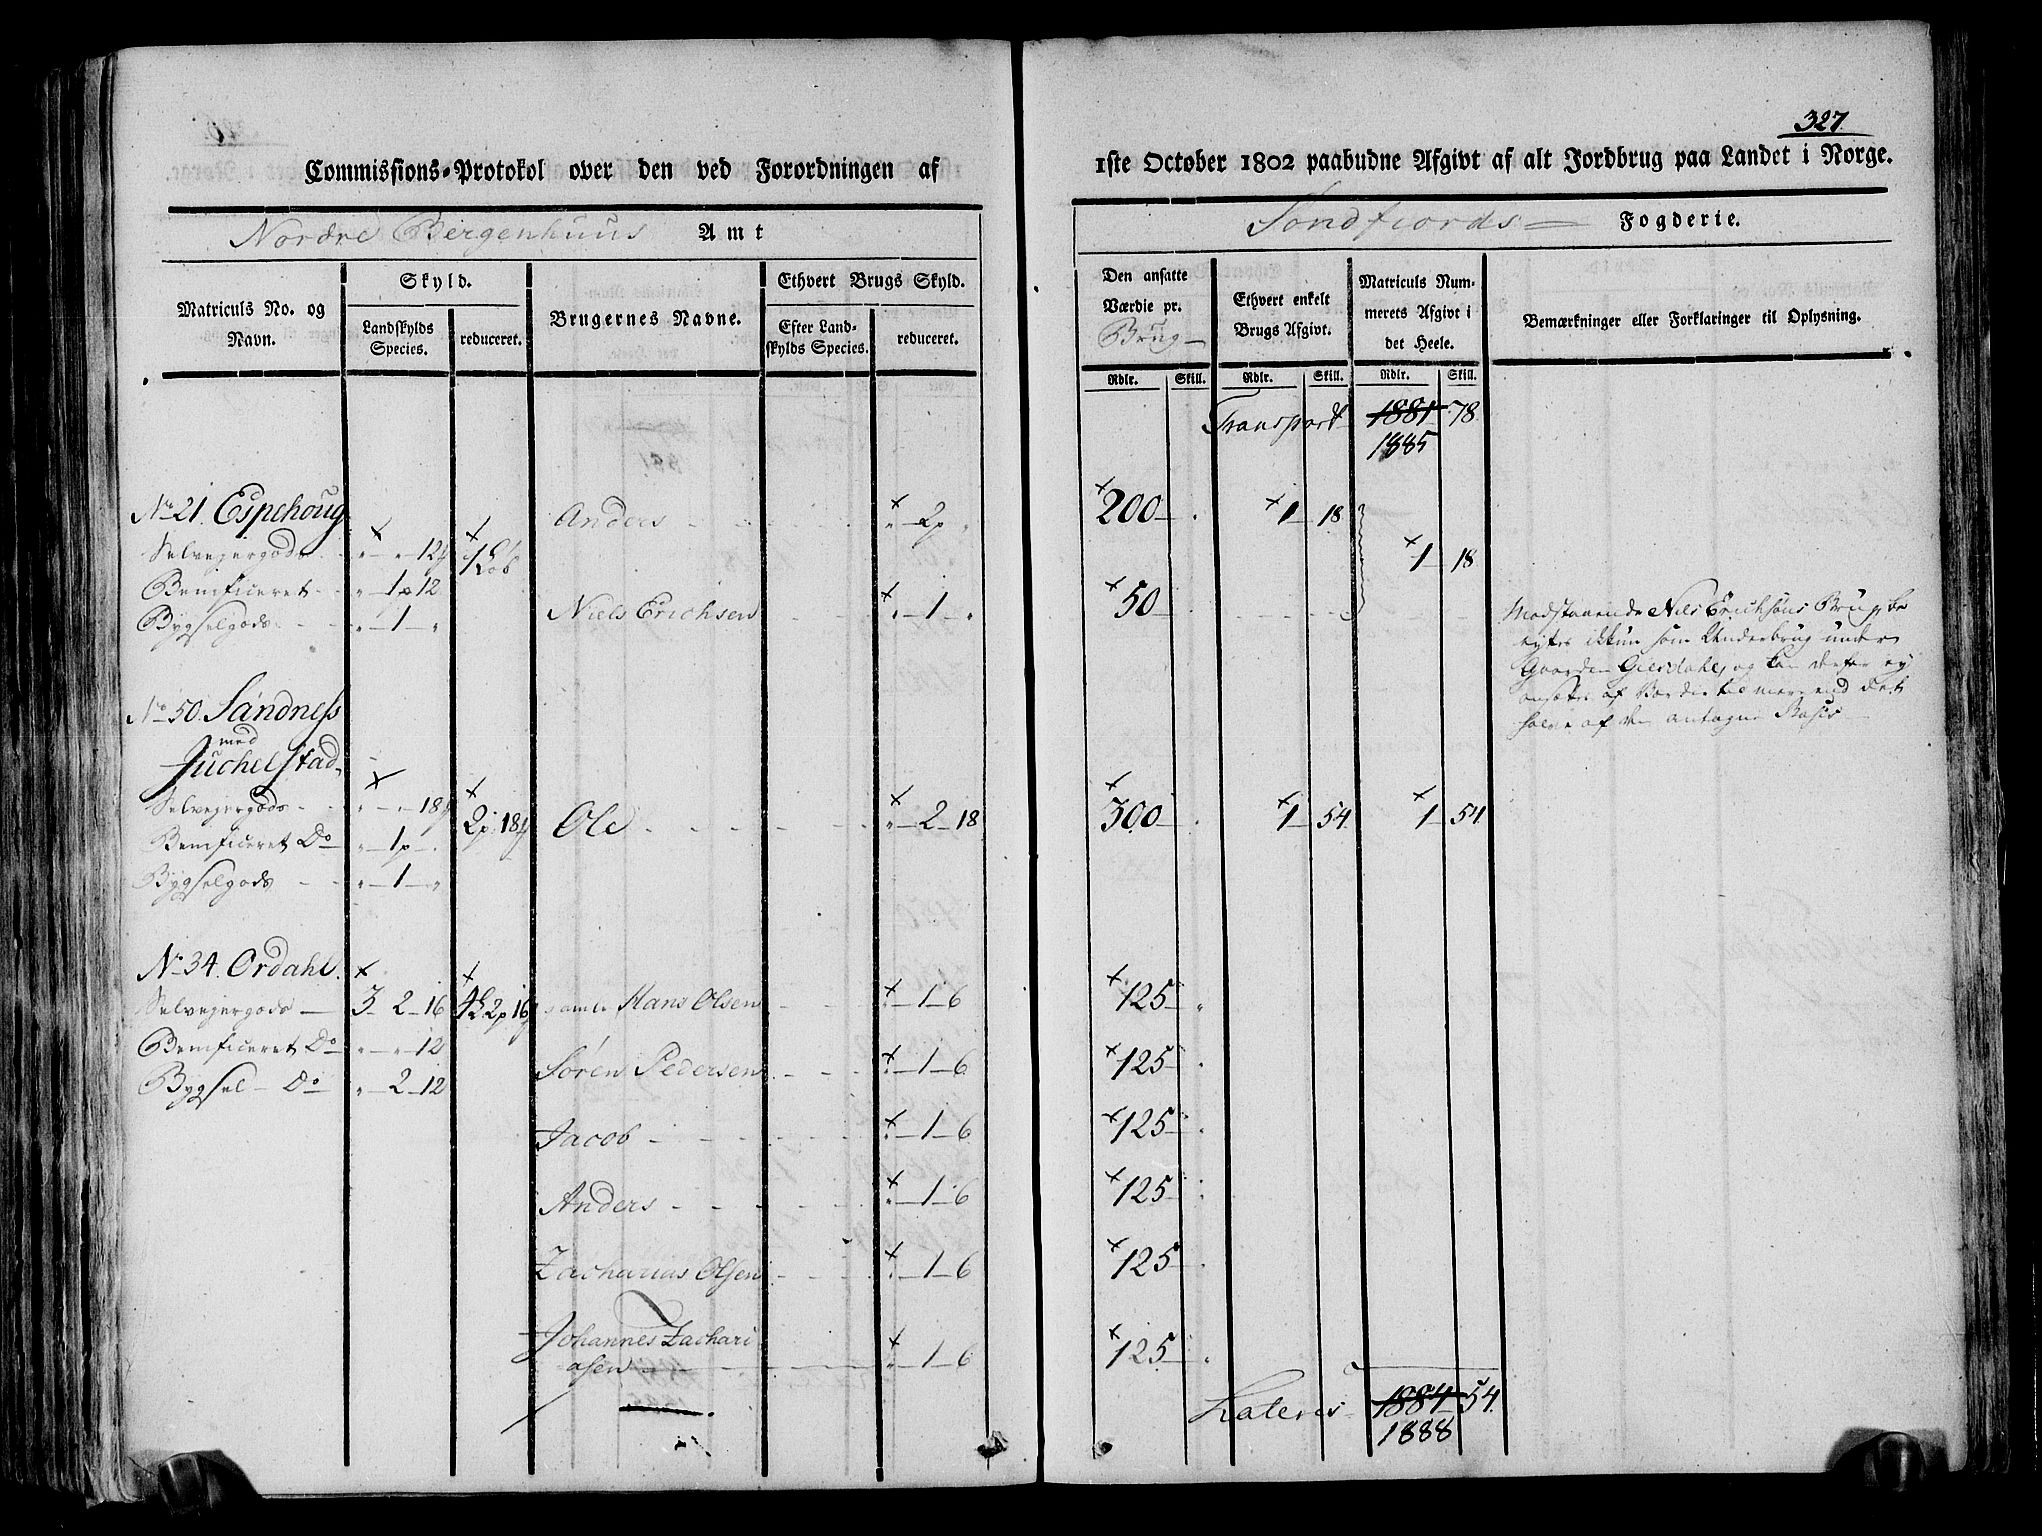 327.
Commissions-Protokol over den ved Forordningen af 1ste October 1802 paabudne Afgivt af alt Jordbrug paa Landet i Norge.
Nordre Bergenhuus Amt
Søndfiords Fogderie.
Matriculs No. og Navn.
Skyld.
Landskylds Species.
reduceret.
Brugernes Navne.
Ethvert Brugs Skyld.
Efter Landskylds Species.
reduceret.
Den ansatte Værdie pr. Brug
Ethvert enkelt Brugs Afgivt.
Matriculs Nummerets Afgivt i det Heele.
Bemærkninger eller Forklaringer til Oplysning.
Rdlr. Skill. Rdlr. Skill. Rdlr. Skill.
Transport 1881 78
1885
No 21. Espehoug Anders 2p 200 1 18
Selvejergods 12 1 18
Beneficeret 1p 12
Bygselgods 1 Niels Erichsen 1 50
Modstaaende Niels Erichsens Brug be
nytes ikkun som Underbrug under
Gaarden Giersdahl, og kan derfor ey
ansættes af Værdie til mere end det
halve af den antagne Basis
No 50. Sandness
med
Juchelstad
Selvejergods 18 2p 18 Ole 2 18 300 1 54 1 54
Beneficeret Do 1p
Bygselgods 1
No 34. Ordahl
Selvejergods 3 2 16 2p 16 Hans Olsen 1 6 125
Beneficeret Do 12
Søren Pedersen 1 6 125
Bygsel Do 2 12
Jacob 1 6 125
Anders 1 6 125
Zacharias Olsen 1 6 125
Johannes Zachari
asen 1 6 125
Lateris 1884 54
1888